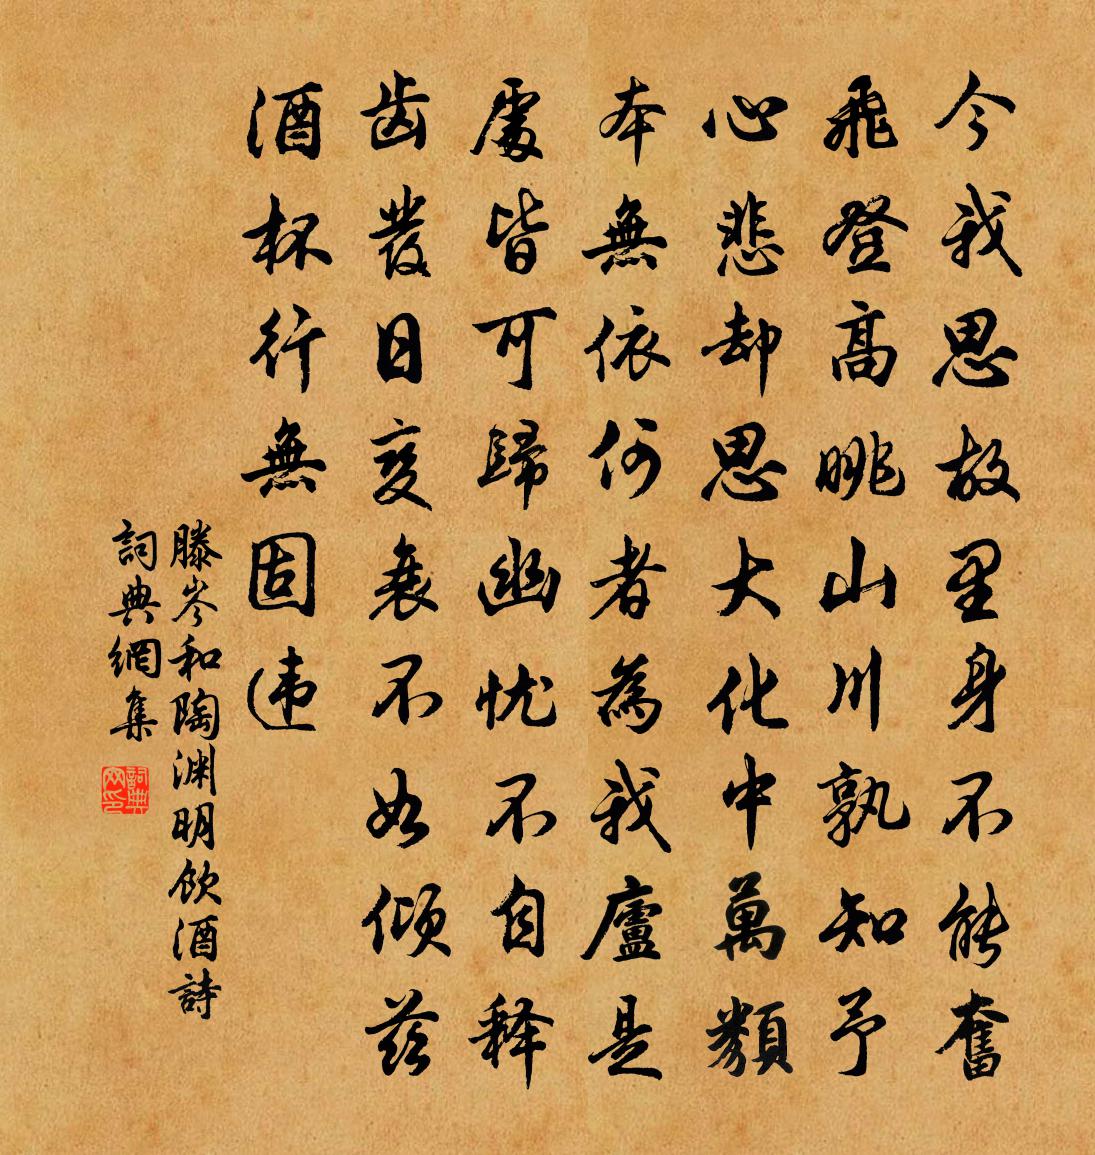 今我思故里身不能奮
飛登高眺山川孰知予
心悲却思大化中萬類
本無依何者為我廬是
處皆可歸幽忧不自释
齿发日变衰不如倾兹
酒杯行無固违
滕岑和陶渊明飲酒詩
詞典網集
詞典
网印